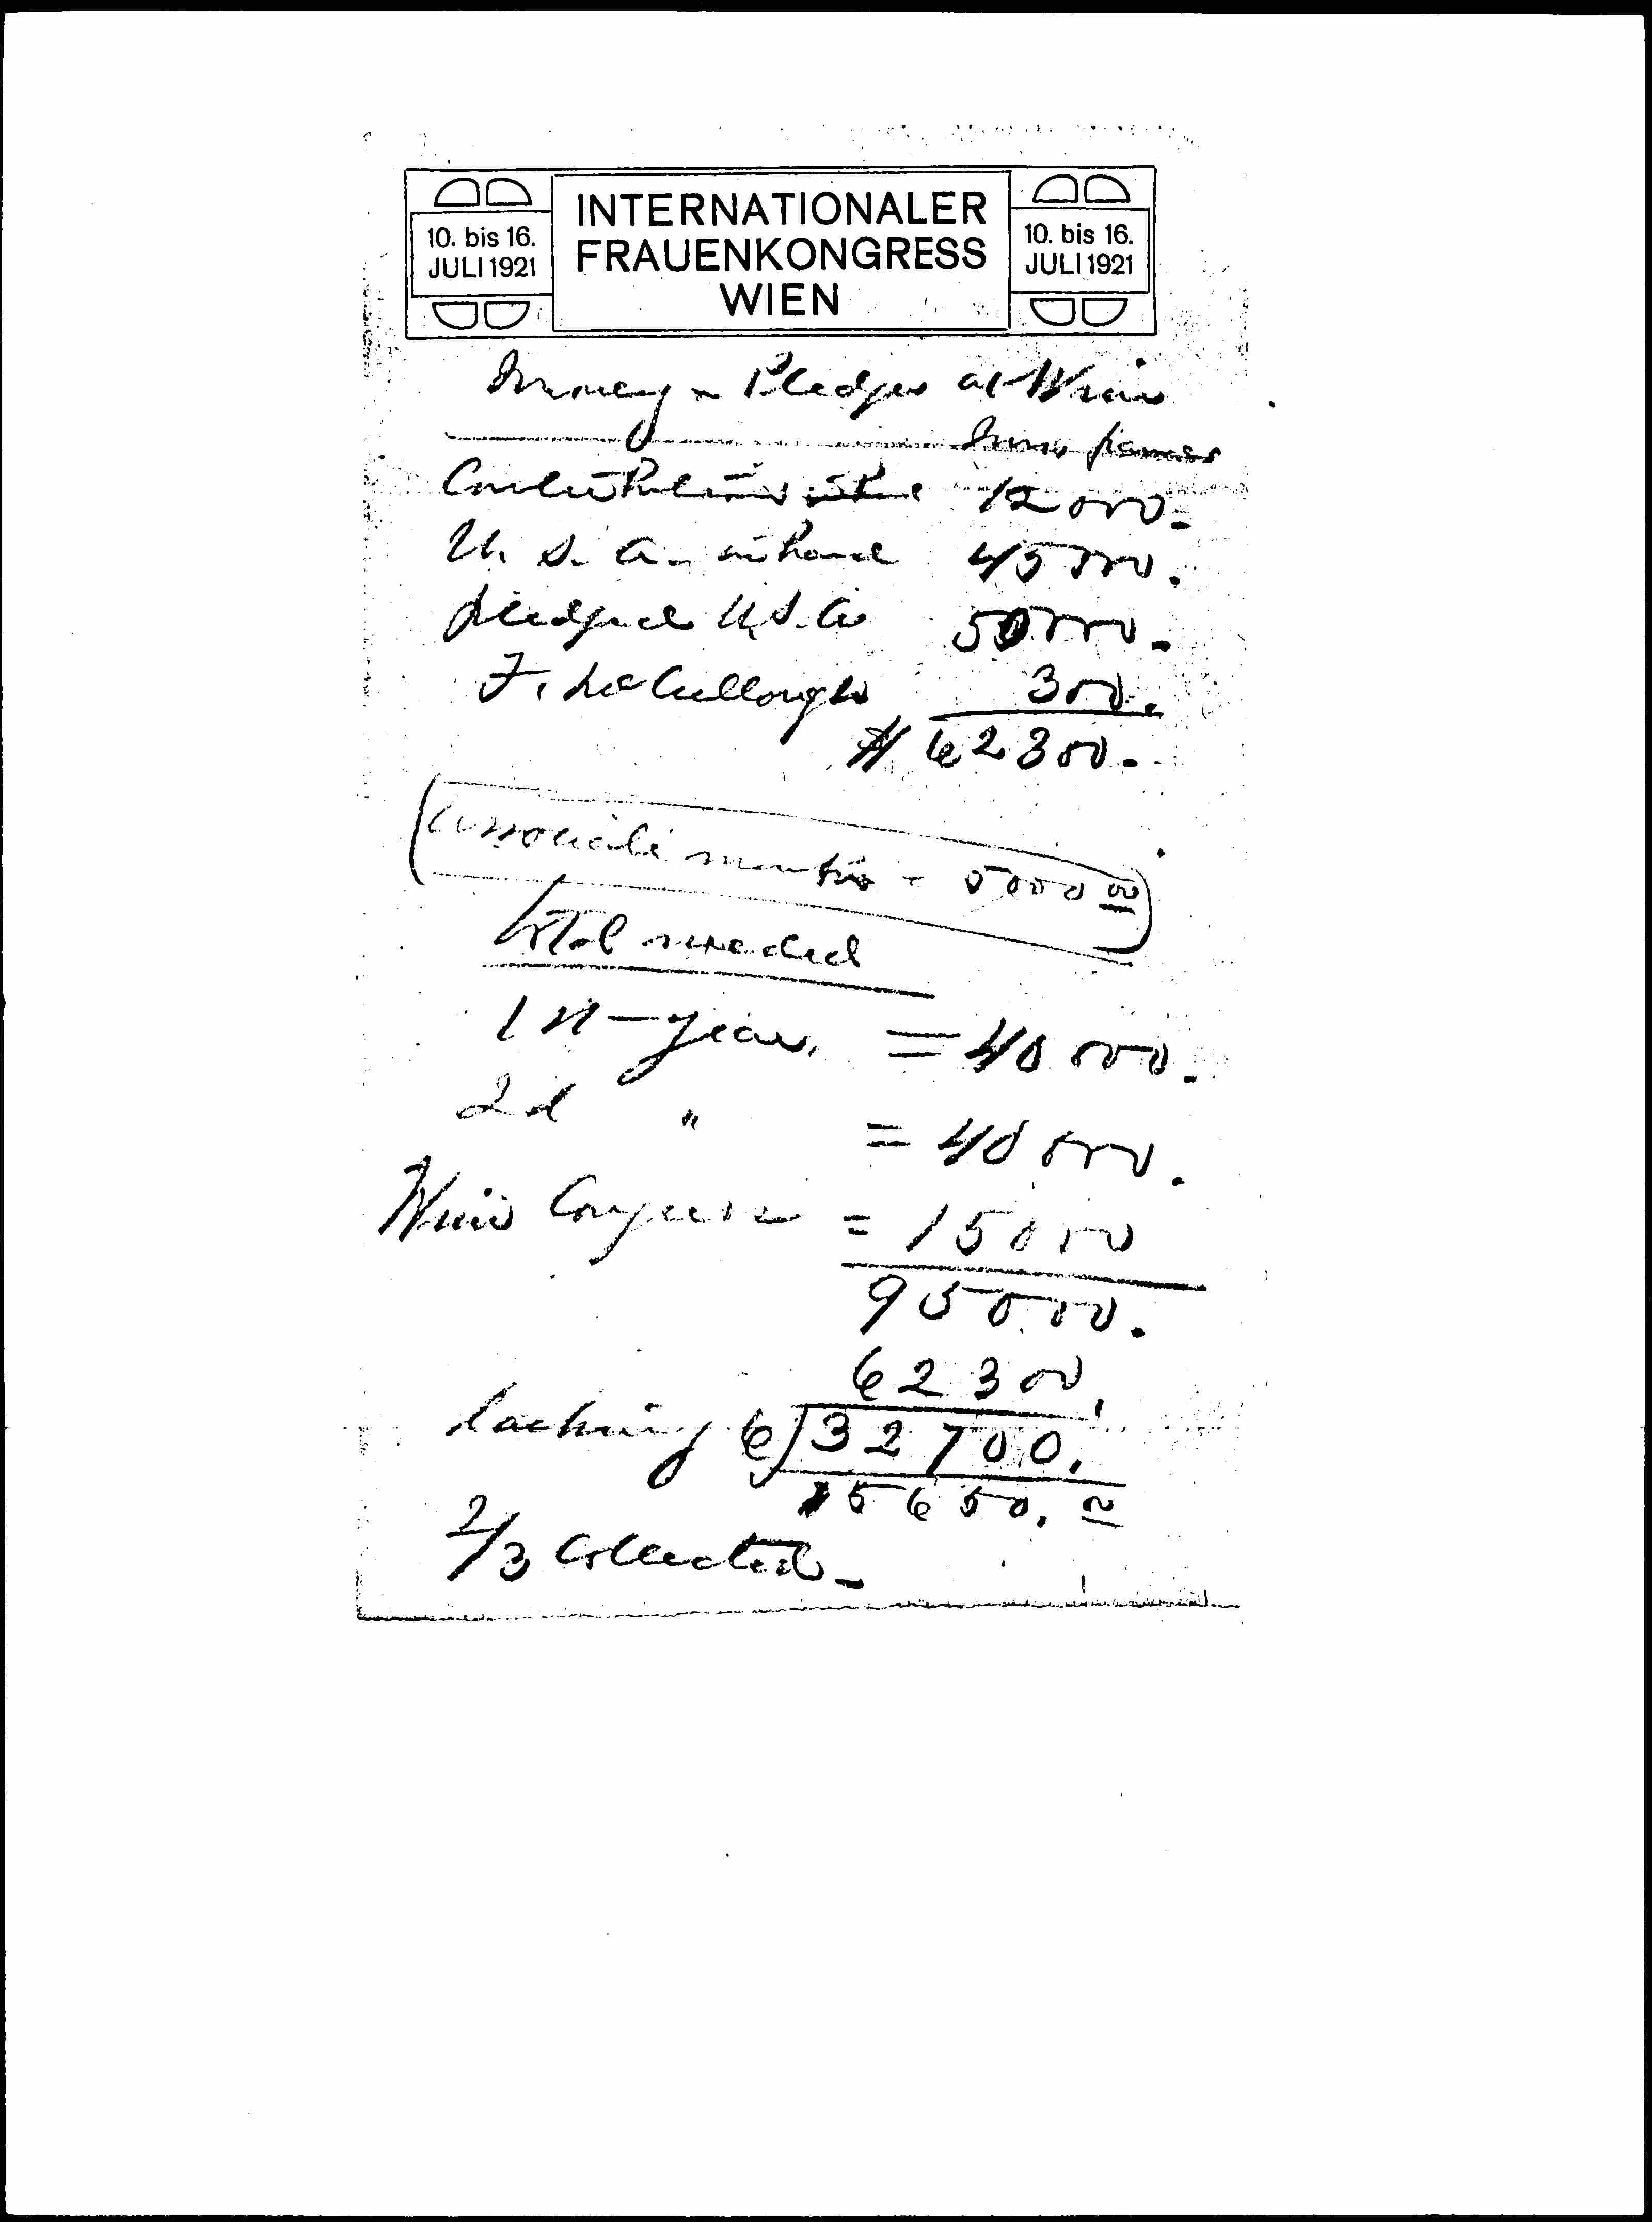 10. bis 16.
JULI 1921
INTERNATIONALER
FRAUENKONGRESS
WIEN
10. bis 16.
JULI 1921
Money - Pledges at Wien
Swiss francs
Contributions 12000-
U. S. A. in hand 45000.
pledged U.S.A 5000.
F. McCullough 300.
62300.
(associate members - 5000 00)
total needed
1st year. = 40 000.
2d " = 40 000.
Wien Congress = 15000
95000.
62300.
lacking 6)32700.
5450.
2/3 Collected-